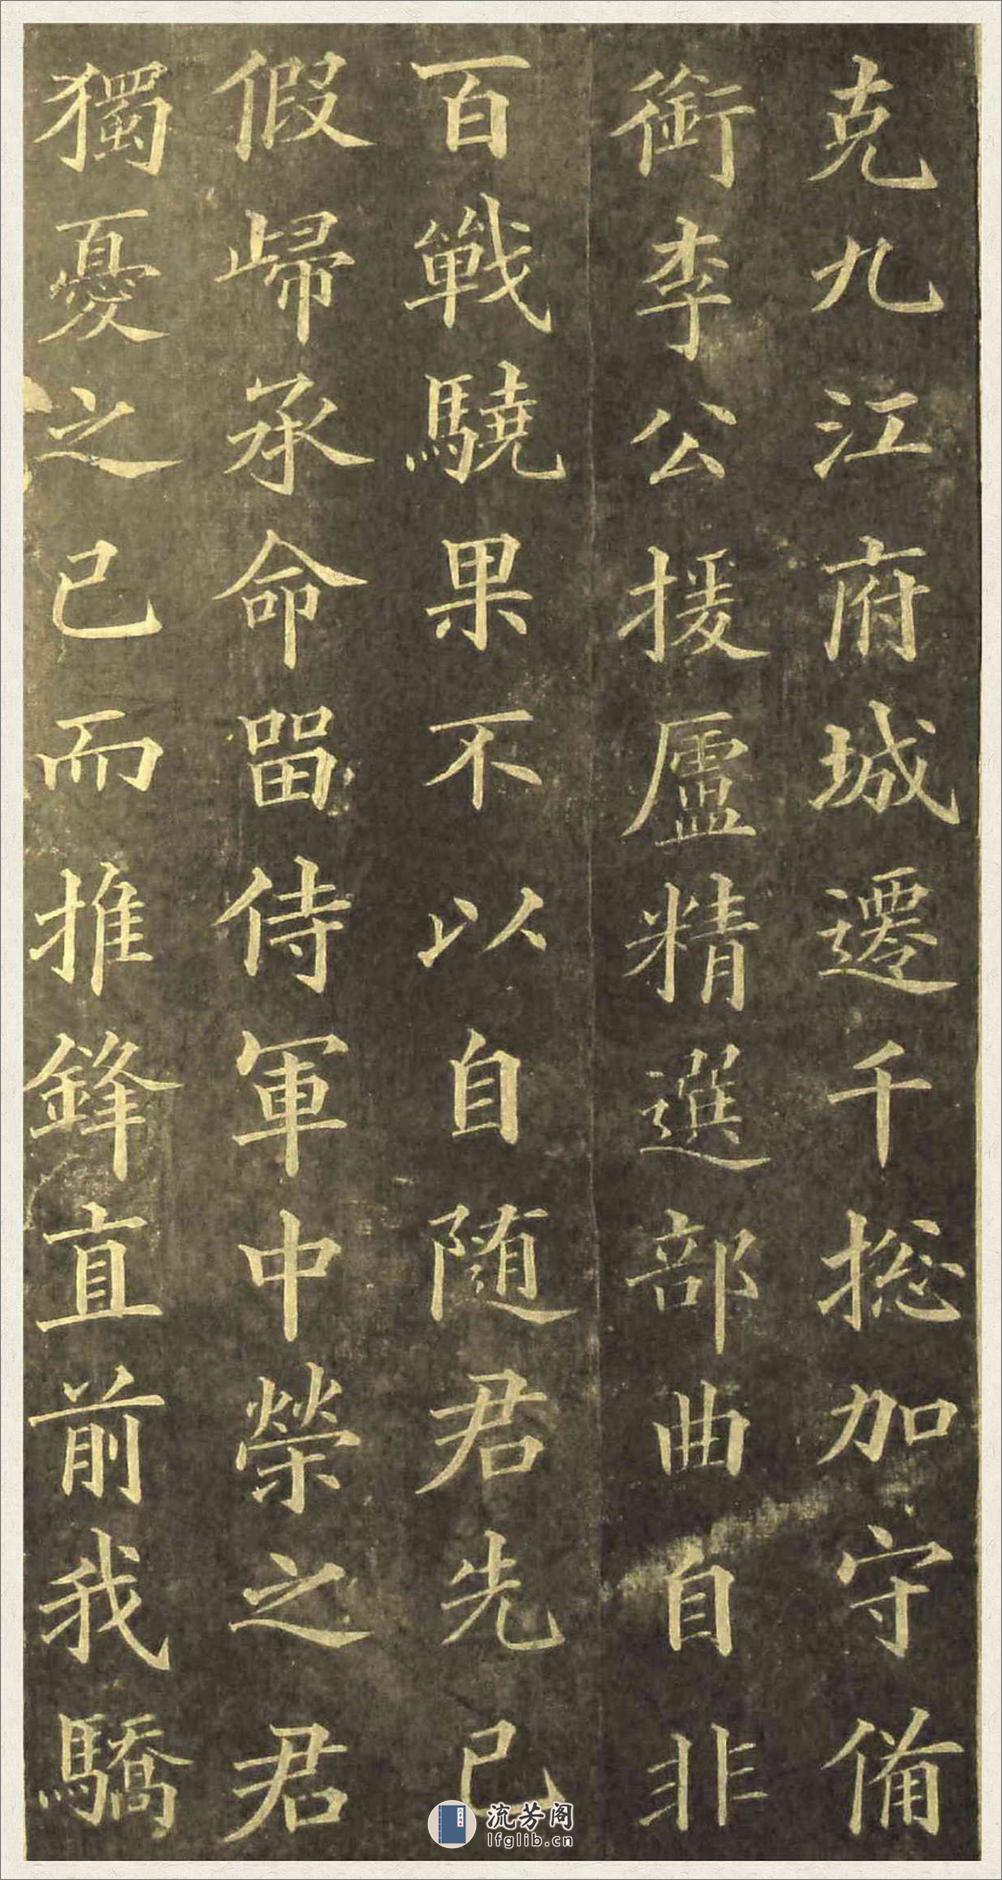 克九江府城遷千摠加守俻
銜李公援廬精選部曲自非
百戰驍果不以自随君先已
假歸承命留侍軍中榮之君
獨憂之已而推鋒直前我驕
流芳阁
lfglib.cn